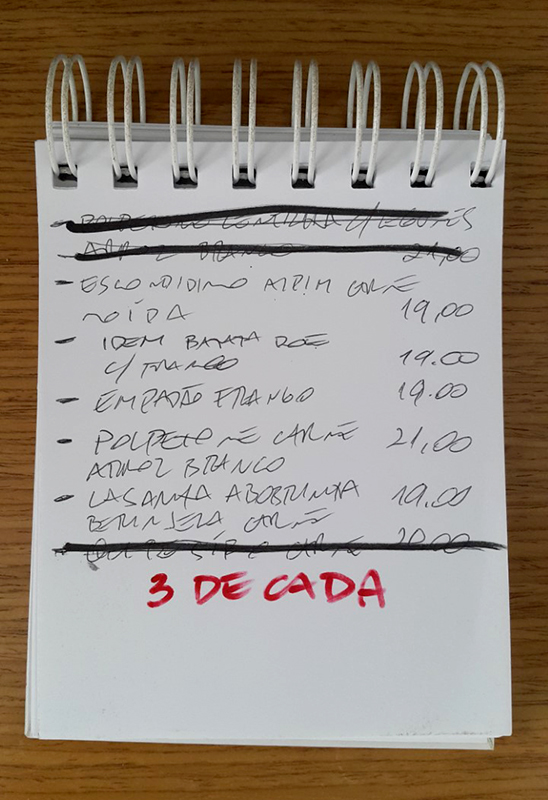 - ESCONDIDINO AIPIM CARNE
MOÍDA 19,00
- IDEM BATATA DOCE
C/ FRANGO 19.00
- EMPADÃO FRANGO 19.00
- POLPETONE CARNE 21,00
ARROZ BRANCO
- LASANHA ABOBRINHA 19.00
BERINJELA CARNE
3 DE CADA